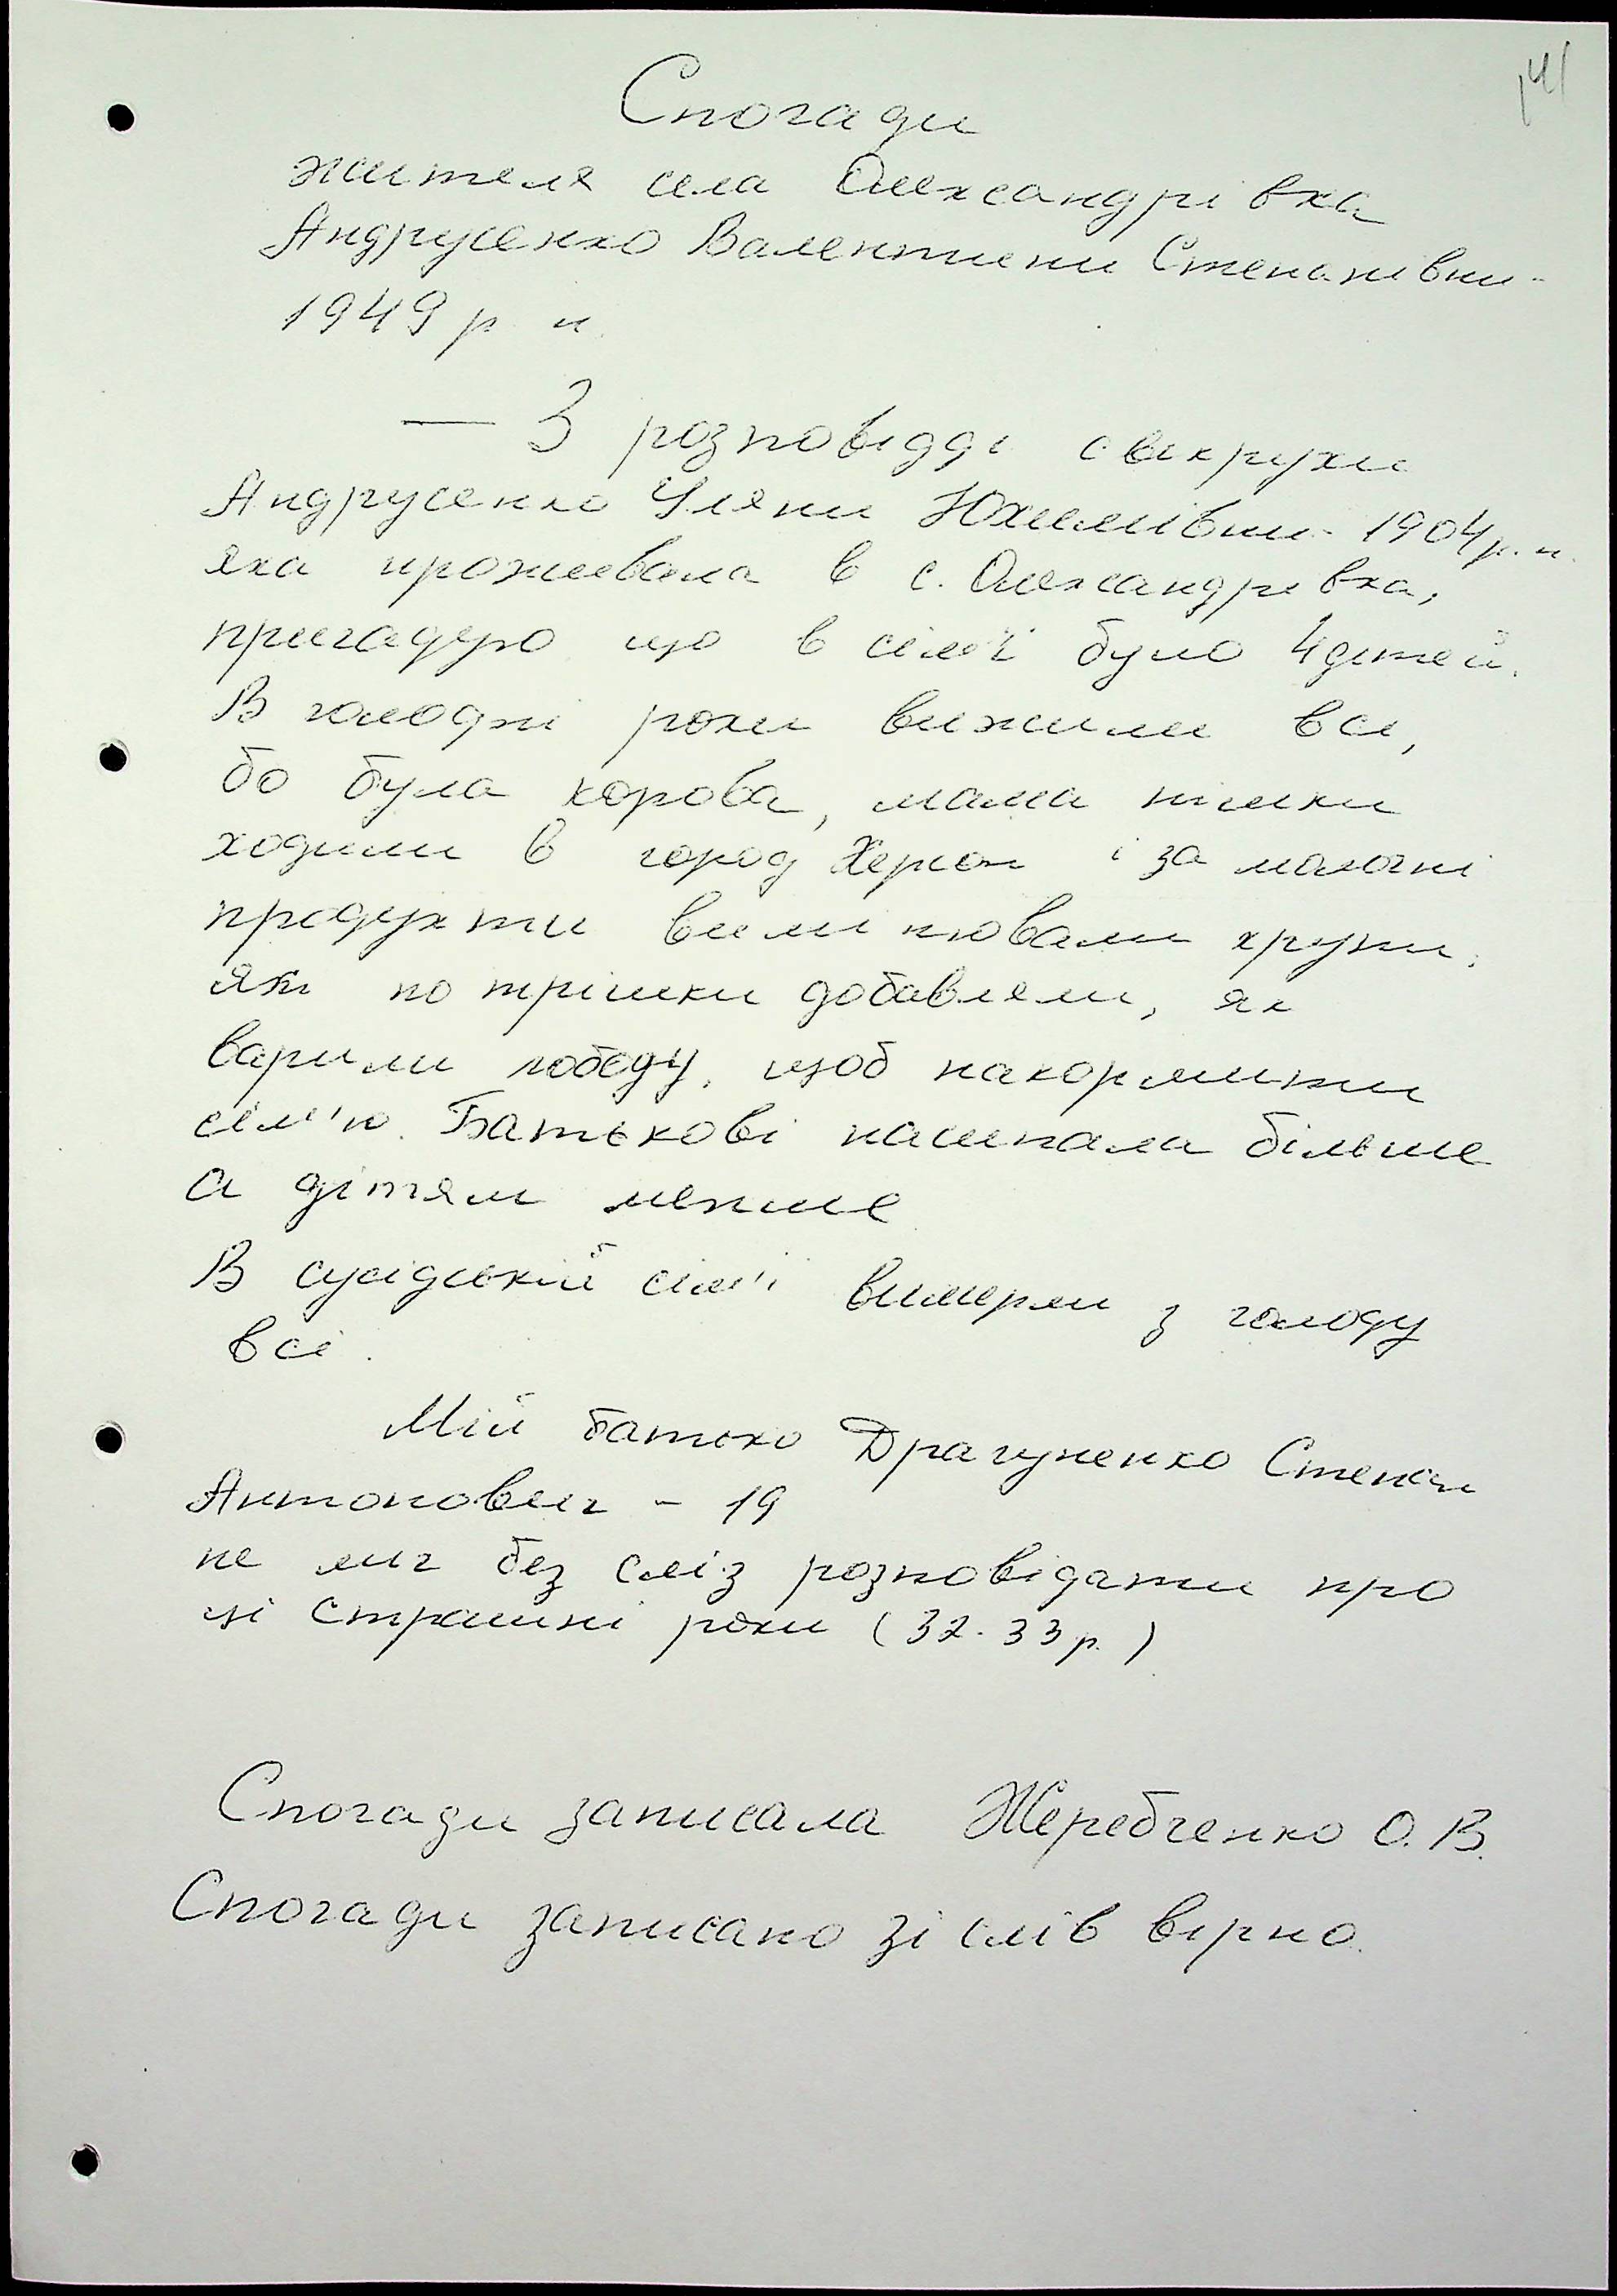 141
Спогади
жителя села Олександрівка
Андрусенко Валентини Степанівни -
1949 р н.
— З розповідді свекрухи
Андрусенко Уляни Юхимівни - 1904 р. н.
яка проживала в с. Олександрівка,
пригадую що в сім'ї було 4 дітей.
В голодні роки вижили всі,
бо була корова, мама пішки
ходили в город Херсон і за молочні
продукти вимінювали крупи,
які по трішки добавляли, як
варили лободу, щоб накормити
сім'ю. Батькові насипали більше
а дітям менше
В сусідській сім'ї вимерли з голоду
всі.
Мій батько Драгуненко Степан
Антонович - 19
не миг без сліз розповідати про
ці страшні роки (32-33 р.)
Спогади записала Жеребченко О. В.
Спогади записано зі слів вірно.